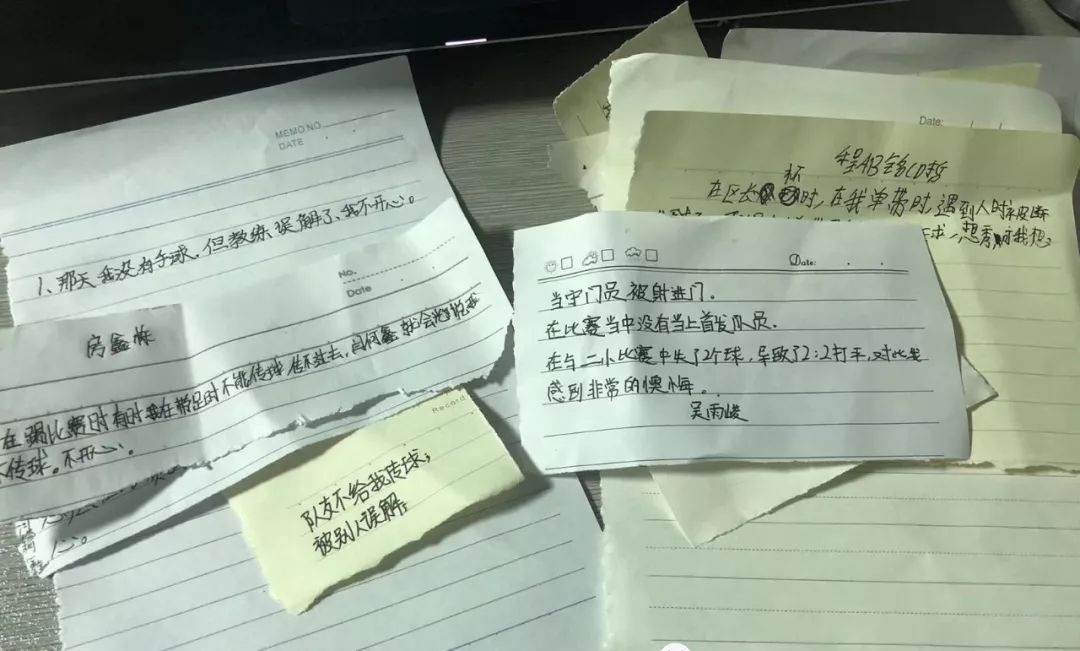 MEMO NO.
DATE
1、那天我没有手球，但教练误解了、我不开心。
No.
Date
房鑫栋
在踢比赛时有时我在带足时不能传球 传不过去，闫何鑫就会
传球。不开心。
心。
Record
队友不给我传球，
被别人误解，
Date:
当守门员被射进门.
在比赛当中没有当上首发队员.
在与二小比赛中失了2个球，导致了2:2打平，对此是
感到非常的懊悔。
吴雨峻
Date:
杯
在区长时，在我单带时，遇到人时被断
求，想